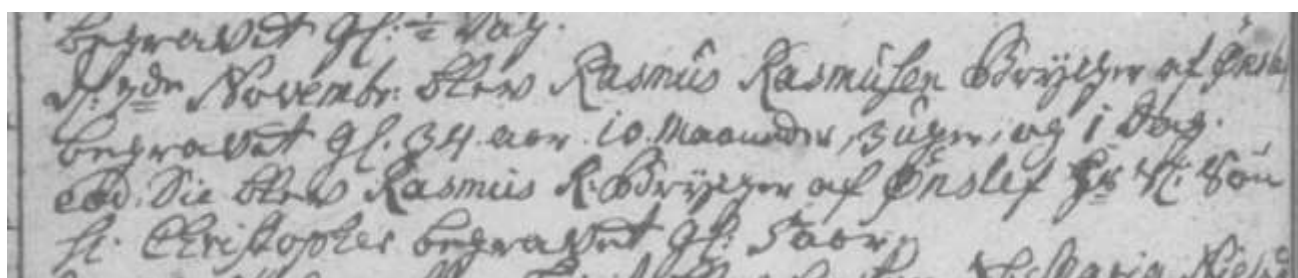 begravet gl: ½ Dag.
d: 7de Novembr: blev Rasmus Rasmusen Brygger af Ønsle
begravet gl. 34 aar 10 Maaneder, 3 uger, og 1 Dag.
eod: Die blev Rasmus R: Brygger af Ønslef Søn
Christopher begravet gl: 5 aar,
Maria